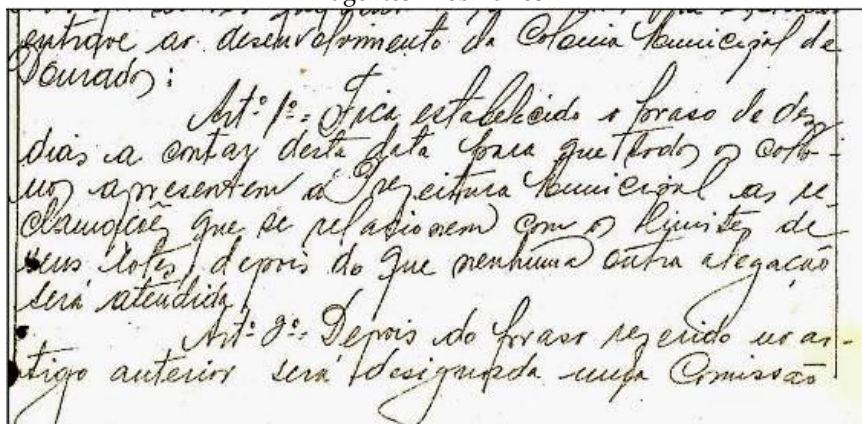 entrave ao desenvolvimento da Colonia Municipal de
Dourados:
Art.º 1º: Fica estabelecido o praso de dez
dias a contar desta data para que todos os colo-
nos apresentem á Prefeitura Municipal as re-
clamações que se relacionem com os limites de
seus lotes, depois do que nenhuma outra alegação
será atendida.
Art.º 2º: Depois do praso referido no ar-
tigo anterior será designada uma Comissão